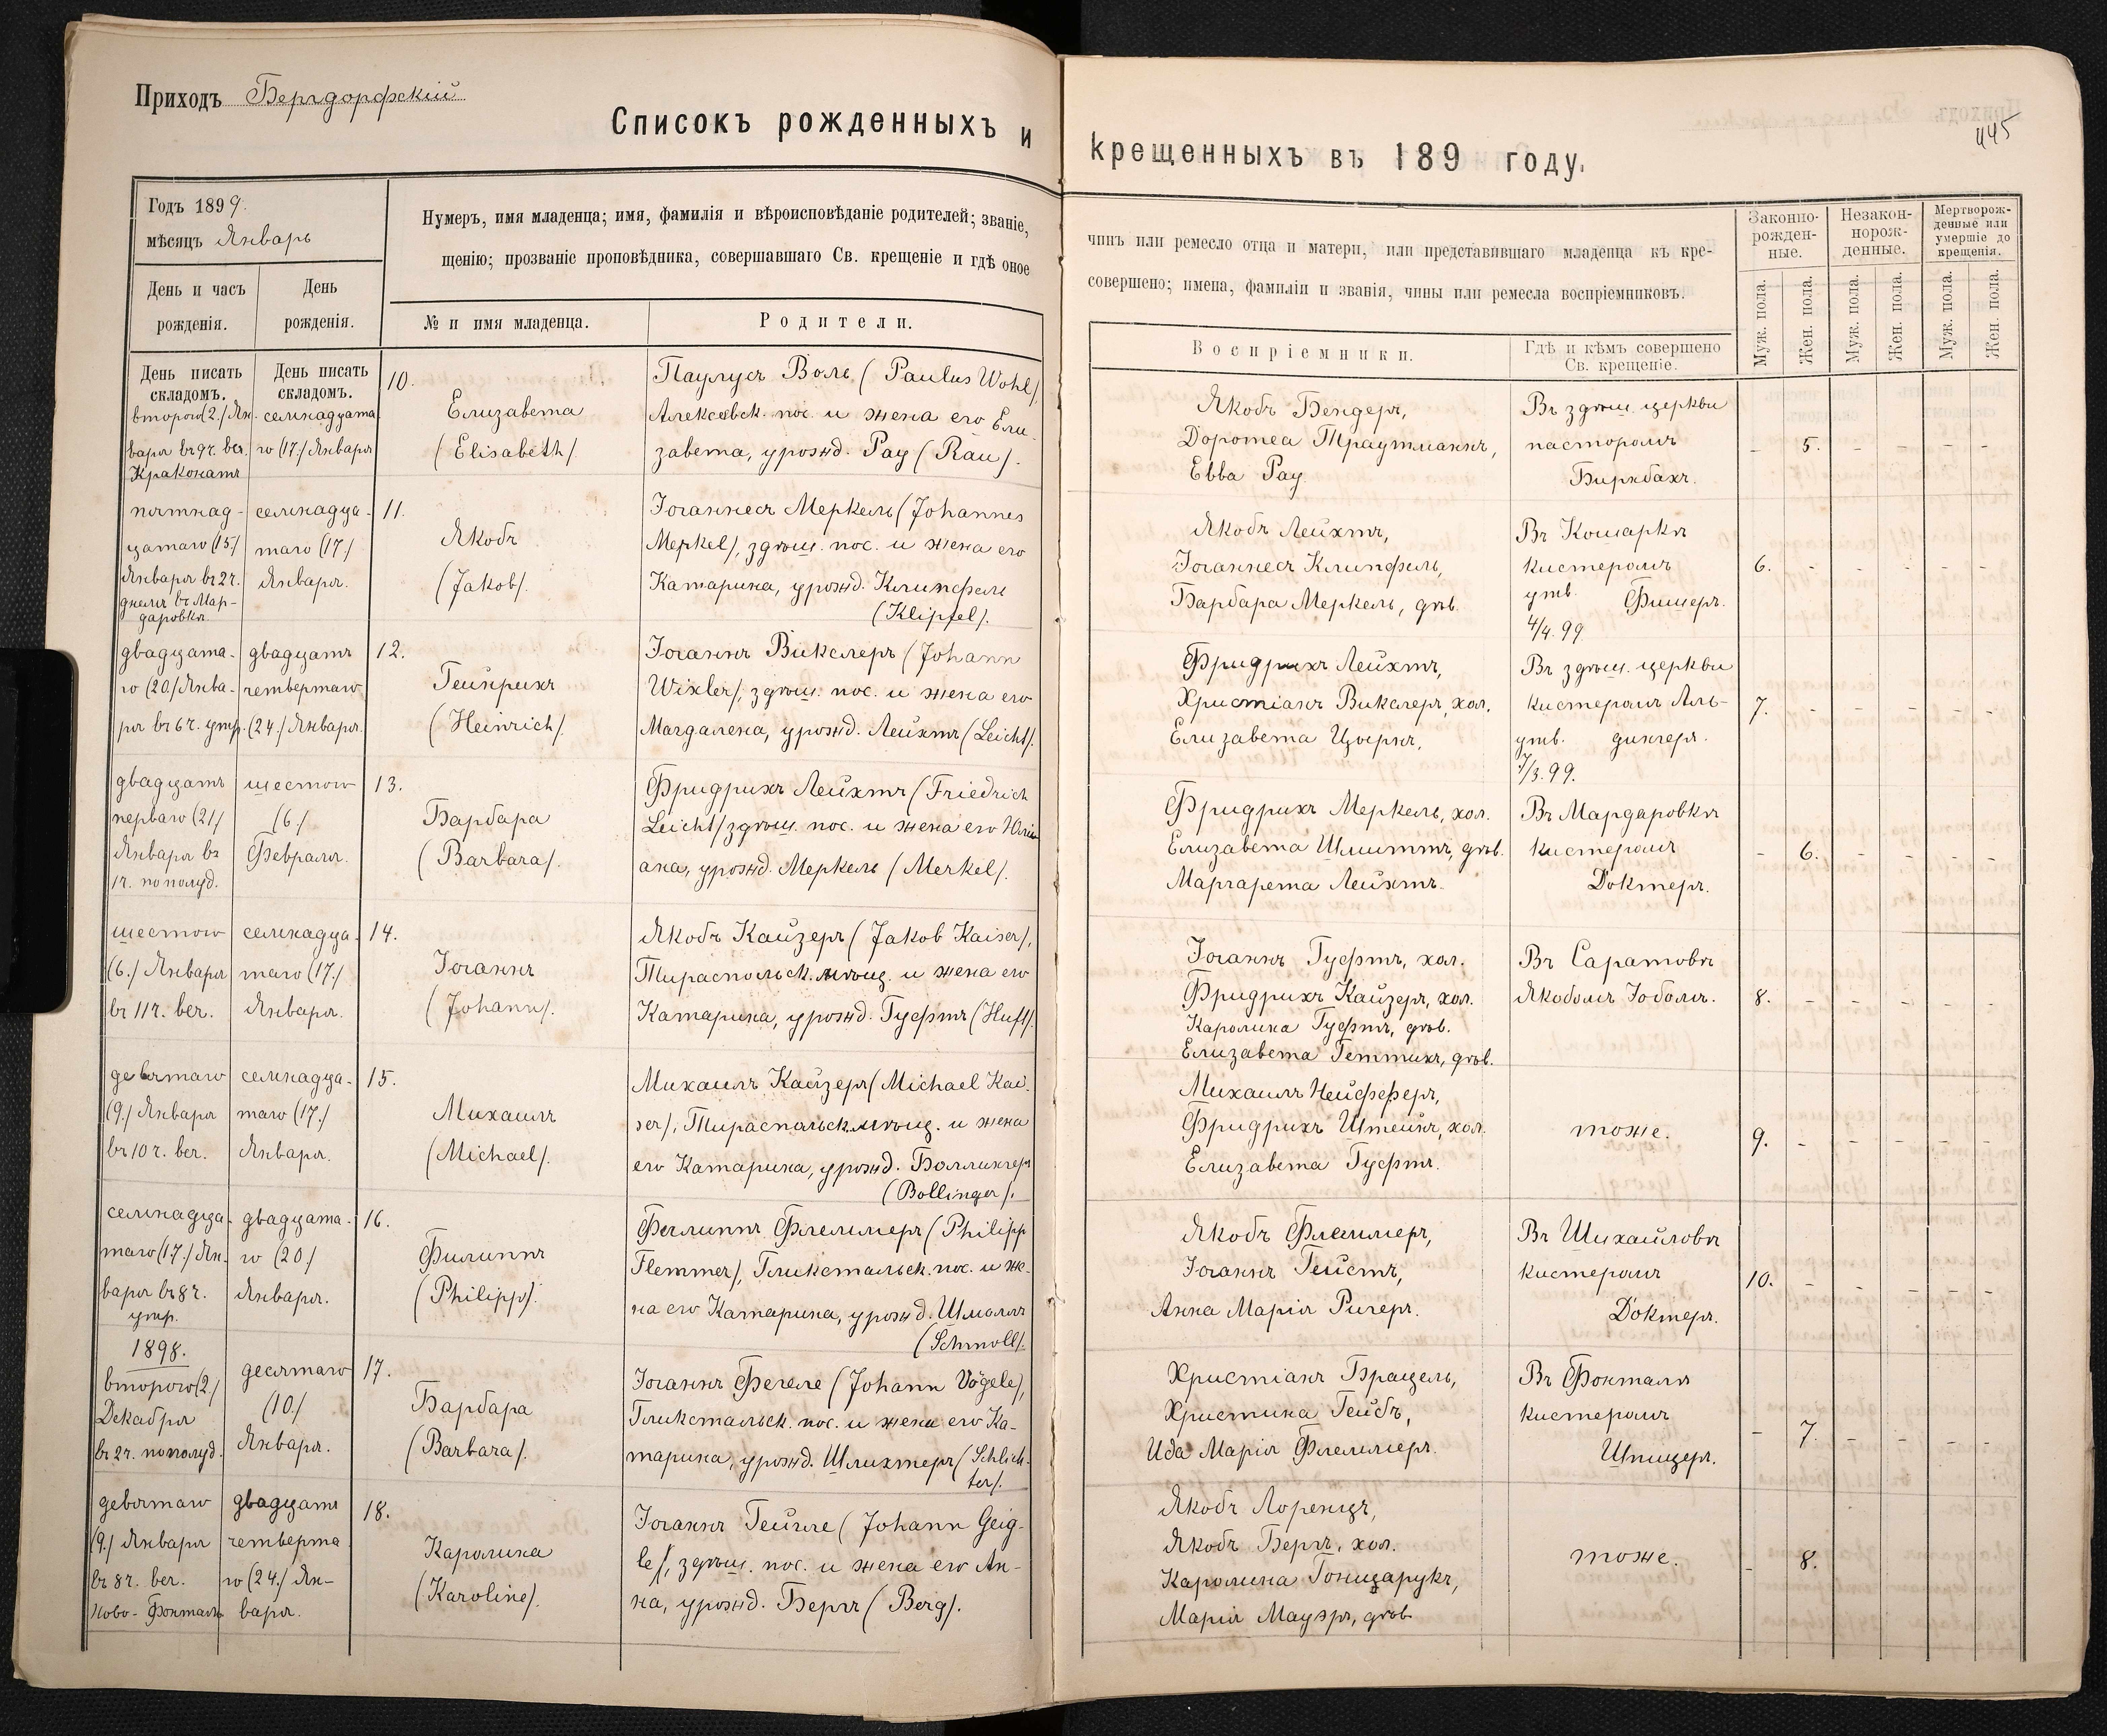 Приходъ Бергдорфскій
Списокъ рожденныхъ и крещенныхъ въ 189 году.
445
Годъ 1899.
мѣсяцъ Январь
День и часъ рожденія.
День рожденія.
Нумеръ, имя младенца; имя, фамилія и вѣроисповѣданіе родителей; званіе, чинъ или ремесло отца и матери, или представившаго младенца къ кре-
щенію; прозваніе проповѣдника, совершавшаго Св. крещеніе и гдѣ оное совершено; имена, фамиліи и званія, чины или ремесла воспріемниковъ.
№ и имя младенца.
Родители.
Воспріемники.
Гдѣ и кѣмъ совершено
Св. крещеніе.
Законно-
рожден-
ные.
Незакон-
норож-
денные.
Мертворож-
денные или
умершіе до
крещенія.
Муж. пола.
Жен. пола.
Муж. пола.
Жен. пола.
Муж. пола.
Жен. пола.
День писать
складомъ.
День писать
складомъ.
второго (2./ Ян-
варя въ 9 ч. веч.
Краконатъ
семнадцата
го (17./ Января
10.
Елизавета
(Elisabeth/.
Паулусъ Воль (Paulus Wohl/,
Алексѣвск. пос. и жена его Ели-
завета, урожд. Рау (Rau/.
Якобъ Бендеръ,
Доротеа Траутманнъ,
Евва Рау.
Въ здѣш. церкви
пасторомъ
Биркбахъ.
- 5. - - - -
пятнад-
цатаго (15./
Января въ 2 ч.
днемъ въ Мар-
даровкѣ.
семнадца-
таго (17./
Января.
11.
Якобъ
(Jakob/.
Іоганнесъ Меркель (Johannes
Merkel/, здѣш. пос. и жена его
Катарина, урожд. Клипфель
(Klipfel/.
Якобъ Лейхтъ,
Іоганнесъ Клипфель,
Барбара Меркель, дѣв.
Въ Кошаркѣ
кистеромъ
утв. Фишеръ.
4/4. 99
6. - - - - -
двадцата-
го (20./ Янва-
ря въ 6 ч. утр.
двадцать
четвертаго
(24./ Января.
12.
Гейнрихъ
(Heinrich/.
Іоганнъ Викслеръ (Johann
Wixler/, здѣш. пос. и жена его
Магдалена, урожд. Лейхтъ (Leicht/.
Фридрихъ Лейхтъ,
Христіанъ Викслеръ, хол.
Елизавета Цыркъ,
Въ здѣш. церкви
кистеромъ Аль-
утв. дингеръ.
7/3. 99.
7. - - - - -
двадцать
перваго (21/
Января въ
1 ч. пополуд.
шестого
(6/
Февраля.
13.
Барбара
(Barbara/.
Фридрихъ Лейхтъ (Friedrich
Leicht/ здѣш. пос. и жена его Юли
ана, урожд. Меркель (Merkel/.
Фридрихъ Меркель, хол.
Елизавета Шмиттъ, дѣв.
Маргарета Лейхтъ.
Въ Мардаровкѣ
кистеромъ
Докторъ.
- 6. - - - -
шестого
(6./ Января
въ 11 ч. веч.
семнадца-
таго (17./
Января.
14.
Іоганнъ
(Johann/.
Якобъ Кайзеръ (Jakob Kaiser/,
Тираспольск. мѣщ. и жена его
Катарина, урожд. Гуфтъ (Huft/.
Іоганнъ Гуфтъ, хол.
Фридрихъ Кайзеръ, хол.
Каролина Гуфтъ, дѣв.
Елизавета Геттихъ, дѣв.
Въ Саратовѣ
Якобомъ Іобомъ.
8. - - - - -
девятаго
(9./ Января
въ 10 ч. веч.
семнадца-
таго (17./
Января.
15.
Михаилъ
(Michael/.
Михаилъ Кайзеръ (Michael Kai-
ser/, Тираспольск. мѣщ. и жена
его Катарина, урожд. Боллингеръ
(Bollinger/.
Михаилъ Нейфферъ,
Фридрихъ Штейнъ, хол.
Елизавета Гуфтъ.
тоже.
9. - - - - -
семнадца-
таго (17./ Ян-
варя въ 8 ч.
утр.
двадцата-
го (20/
Января.
16.
Филиппъ
(Philipp/.
Филиппъ Флеммеръ (Philipp
Flemmer/, Гликстальск. пос. и же-
на его Катарина, урожд. Шмолль
(Schmoll/.
Якобъ Флеммеръ,
Іоганнъ Гейстъ,
Анна Марія Ригеръ.
Въ Михайловѣ
кистеромъ
Докторъ.
10. - - - - -
1898.
второго (2./
Декабря
въ 2 ч. пополуд.
десятаго
(10./
Января.
17.
Барбара
(Barbara/.
Іоганнъ Фегеле (Johann Vögele/,
Гликстальск. пос. и жена его Ка-
тарина, урожд. Шлихтеръ (Schlich-
ter/.
Христіанъ Брацель,
Христина Гейбъ,
Ида Марія Флеммеръ.
Въ Фонталѣ
кистеромъ
Шпицеръ.
- 7. - - - -
девятаго
(9./ Января
въ 8 ч. веч.
Ново-Фонталь
двадцать
четверта
го (24./ Ян-
варя.
18.
Каролина
(Karoline/.
Іоганнъ Гейгле (Johann Geig-
le/, здѣш. пос. и жена его Ан-
на, урожд. Бергъ (Berg/.
Якобъ Лоренцъ,
Якобъ Бергъ, хол.
Каролина Гонцарукъ,
Марія Мауэръ, дѣв.
тоже.
- 8.